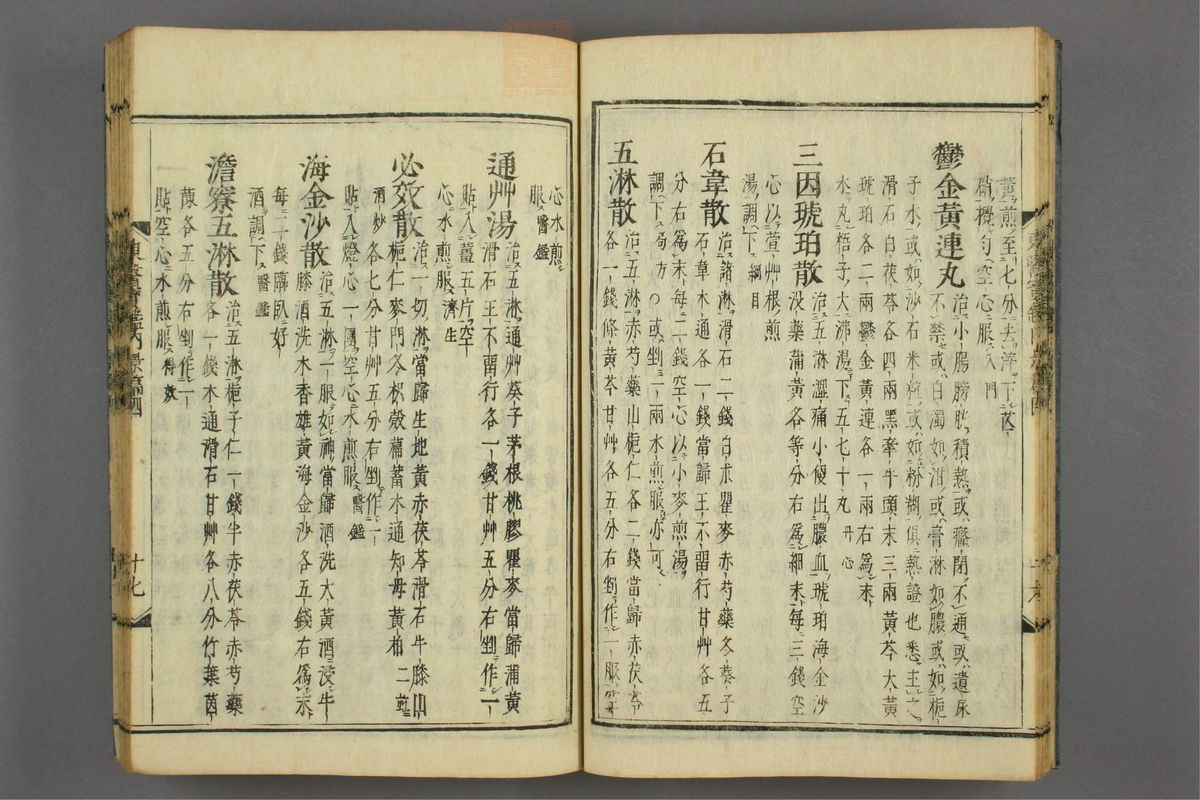 黃煎至七分去滓下芒
硝攪勻空心服入門
鬱金黃連丸治小腸膀胱積熱或癃閉不通或遺尿
不禁或白濁如泔或膏淋如膿或如梔
子水或如沙石米粒或如粉糊俱熱證也悉主之
滑石白茯苓各四兩黑牽牛頭末三兩黃芩大黃
琥珀各二兩鬱金黃連各一兩右爲末
水丸梧子大沸湯下五七十丸丹心
三因琥珀散治五淋澁痛小便出膿血琥珀海金沙
没藥蒲黃各等分右爲細末每三錢空
心以萱艸根煎
湯調下綱目
石韋散治諸淋滑石二錢白朮瞿麥赤芍藥冬葵子
石韋木通各一錢當歸王不留行甘艸各五
分右爲末每二錢空心以小麥煎湯
調下局方○或剉一兩水煎服亦可
五淋散治五淋赤芍藥山梔仁各二錢當歸赤茯苓
各一錢條黃芩甘艸各五分右剉作一服空
心水煎
服醫鑑
通艸湯治五淋通艸葵子茅根桃膠瞿麥當歸蒲黃
滑石王不留行各一錢甘艸五分右剉作一
貼入薑五片空
心水煎服濟生
必效散治一切淋當歸生地黃赤茯苓滑石牛膝山
梔仁麥門冬枳殼萹蓄木通知母黃柏二並
酒炒各七分甘艸五分右剉作一
貼入燈心一團空心水煎服醫鑑
海金沙散治五淋一服如神當歸酒洗大黃酒浸牛
膝酒洗木香雄黃海金沙各五錢右爲末
每一錢臨臥好
酒調下醫鑑
澹寮五淋散治五淋梔子仁一錢半赤茯苓赤芍藥
各一錢木通滑石甘艸各八分竹葉茵
蔯各五分右剉作一
貼空心水煎服得效
東醫寶鑑內景篇四
十七